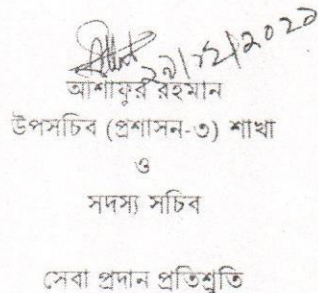 ২৯/১২/২০২১
আশাফুর রহমান
উপসচিব (প্রশাসন-৩) শাখা
ও
সদস্য সচিব
সেবা প্রদান প্রতিশ্রুতি